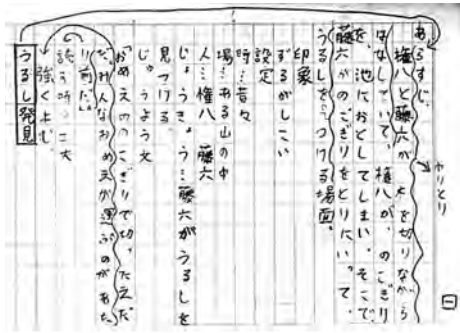 一
あらすじ
権八と藤六が、木を切りながら
はなしていて、権八が、のこぎり
を、池におとしてしまい、そこで
藤六がのこぎりをとりにいって、
うるしを見つける場面。
やりとり
印象
ずるがしこい
設定
時…昔々
場…ある山の中
人…権八 藤六
じょうきょう…藤六がうるしを
見つける。
じゅうよう文
「おめえののこぎりで切ったえだ
だ。みんなおめえが運ぶのがあた
り前だ。」
読む時の工夫
強くよむ。
うるし発見